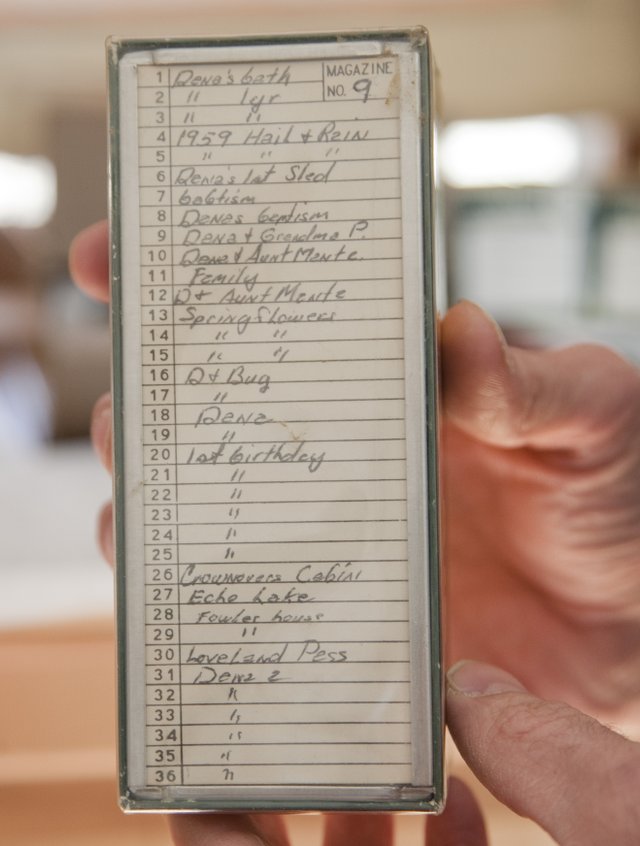 1 Dena's bath
MAGAZINE
NO. 9
2 " 1yr
3 " "
4 1959 Hail & Rain
5 " " "
6 Dena's 1st Sled
7 babtism
8 Denas baptism
9 Dena & Grandma P.
10 Dena & Aunt Mante.
11 Family
12 D & Aunt Mante
13 Spring flowers
14 " "
15 " "
16 D & Bug
17 "
18 Dena
19 "
20 1st birthday
21 "
22 "
23 "
24 "
25 "
26 Crownovers Cabin
27 Echo Lake
28 Fowler house
29 "
30 Loveland Pass
31 Dena 2
32 "
33 "
34 "
35 "
36 "